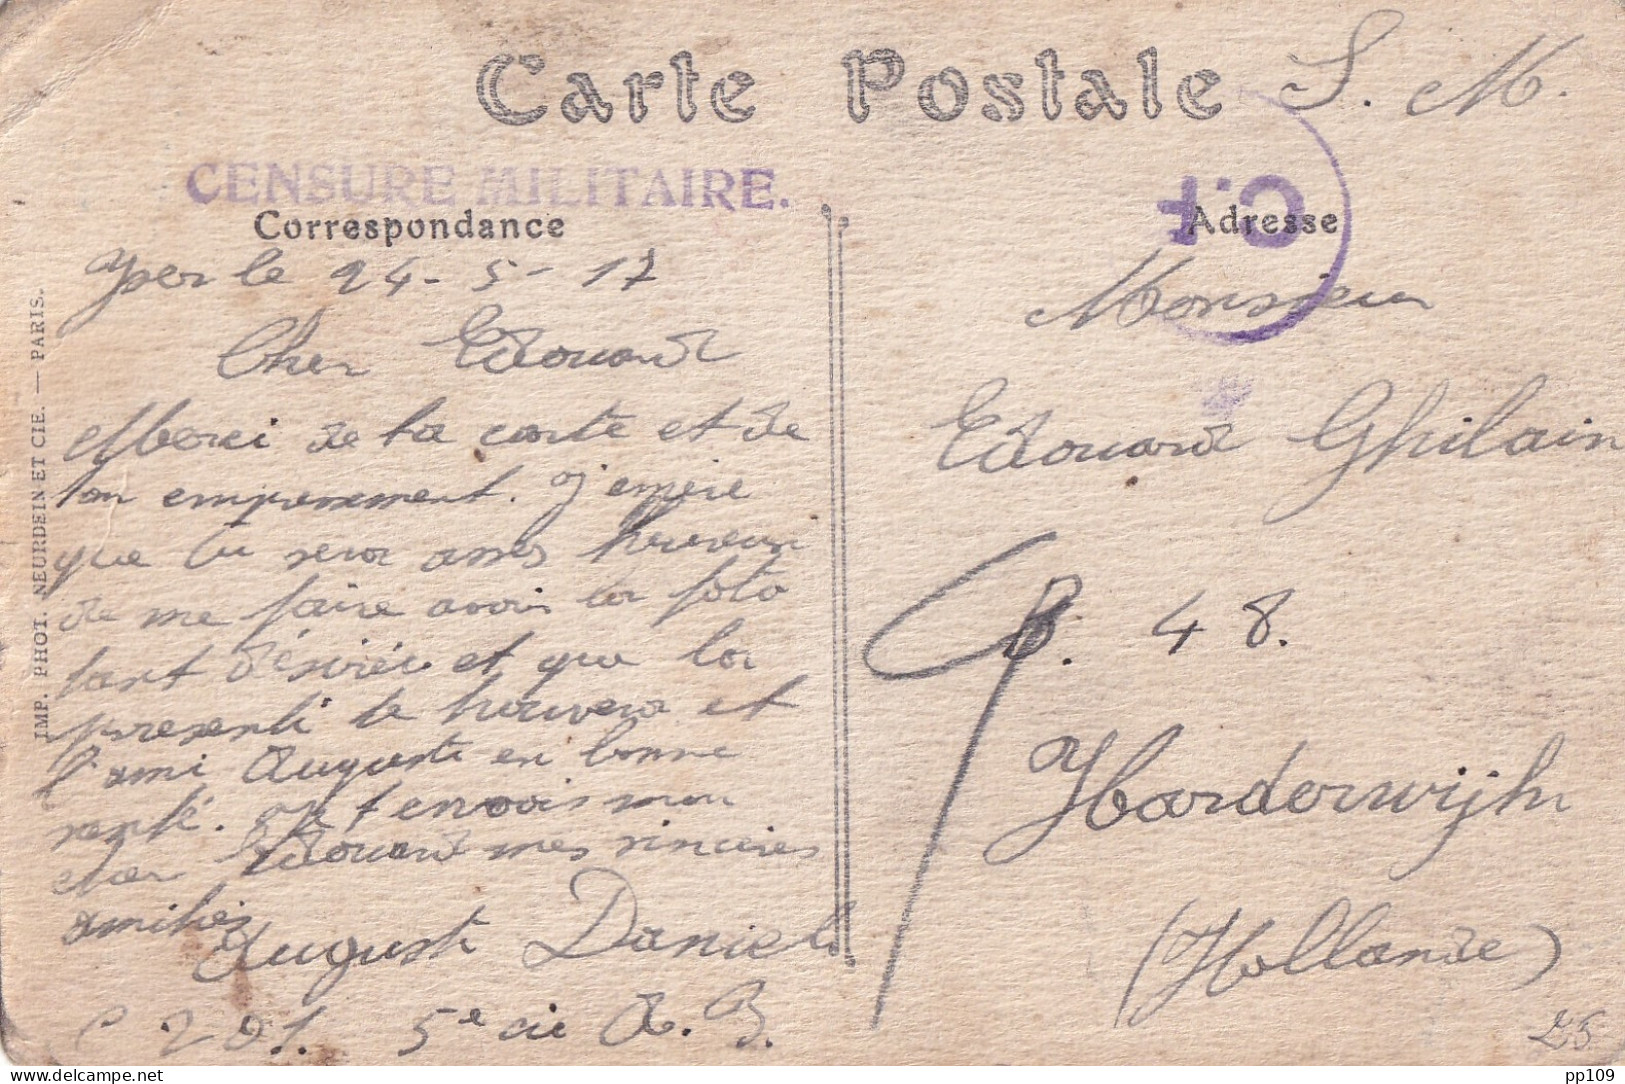 Carte Postale
S. M.
CENSURE MILITAIRE.
C.F
Correspondance
Adresse
Yser le 24-5-17
Cher Edouard
Merci de ta carte et de
ton empressement. J'espère
que tu sera asses heureux
de me faire avoir la foto
tant désirée et que la
presente te trouvera et
l'ami Auguste en bonne
santé. t'envois mon
cher Edouard mes sinceres
amitiés
Auguste Daniels
C 201. 5e cie A. B.
IMP. PHOT. NEURDEIN ET CIE. — PARIS.
Monsieur
Edouard Ghilain
B. 48.
Harderwijk
(Hollande)
25
delcampe.net
pp109